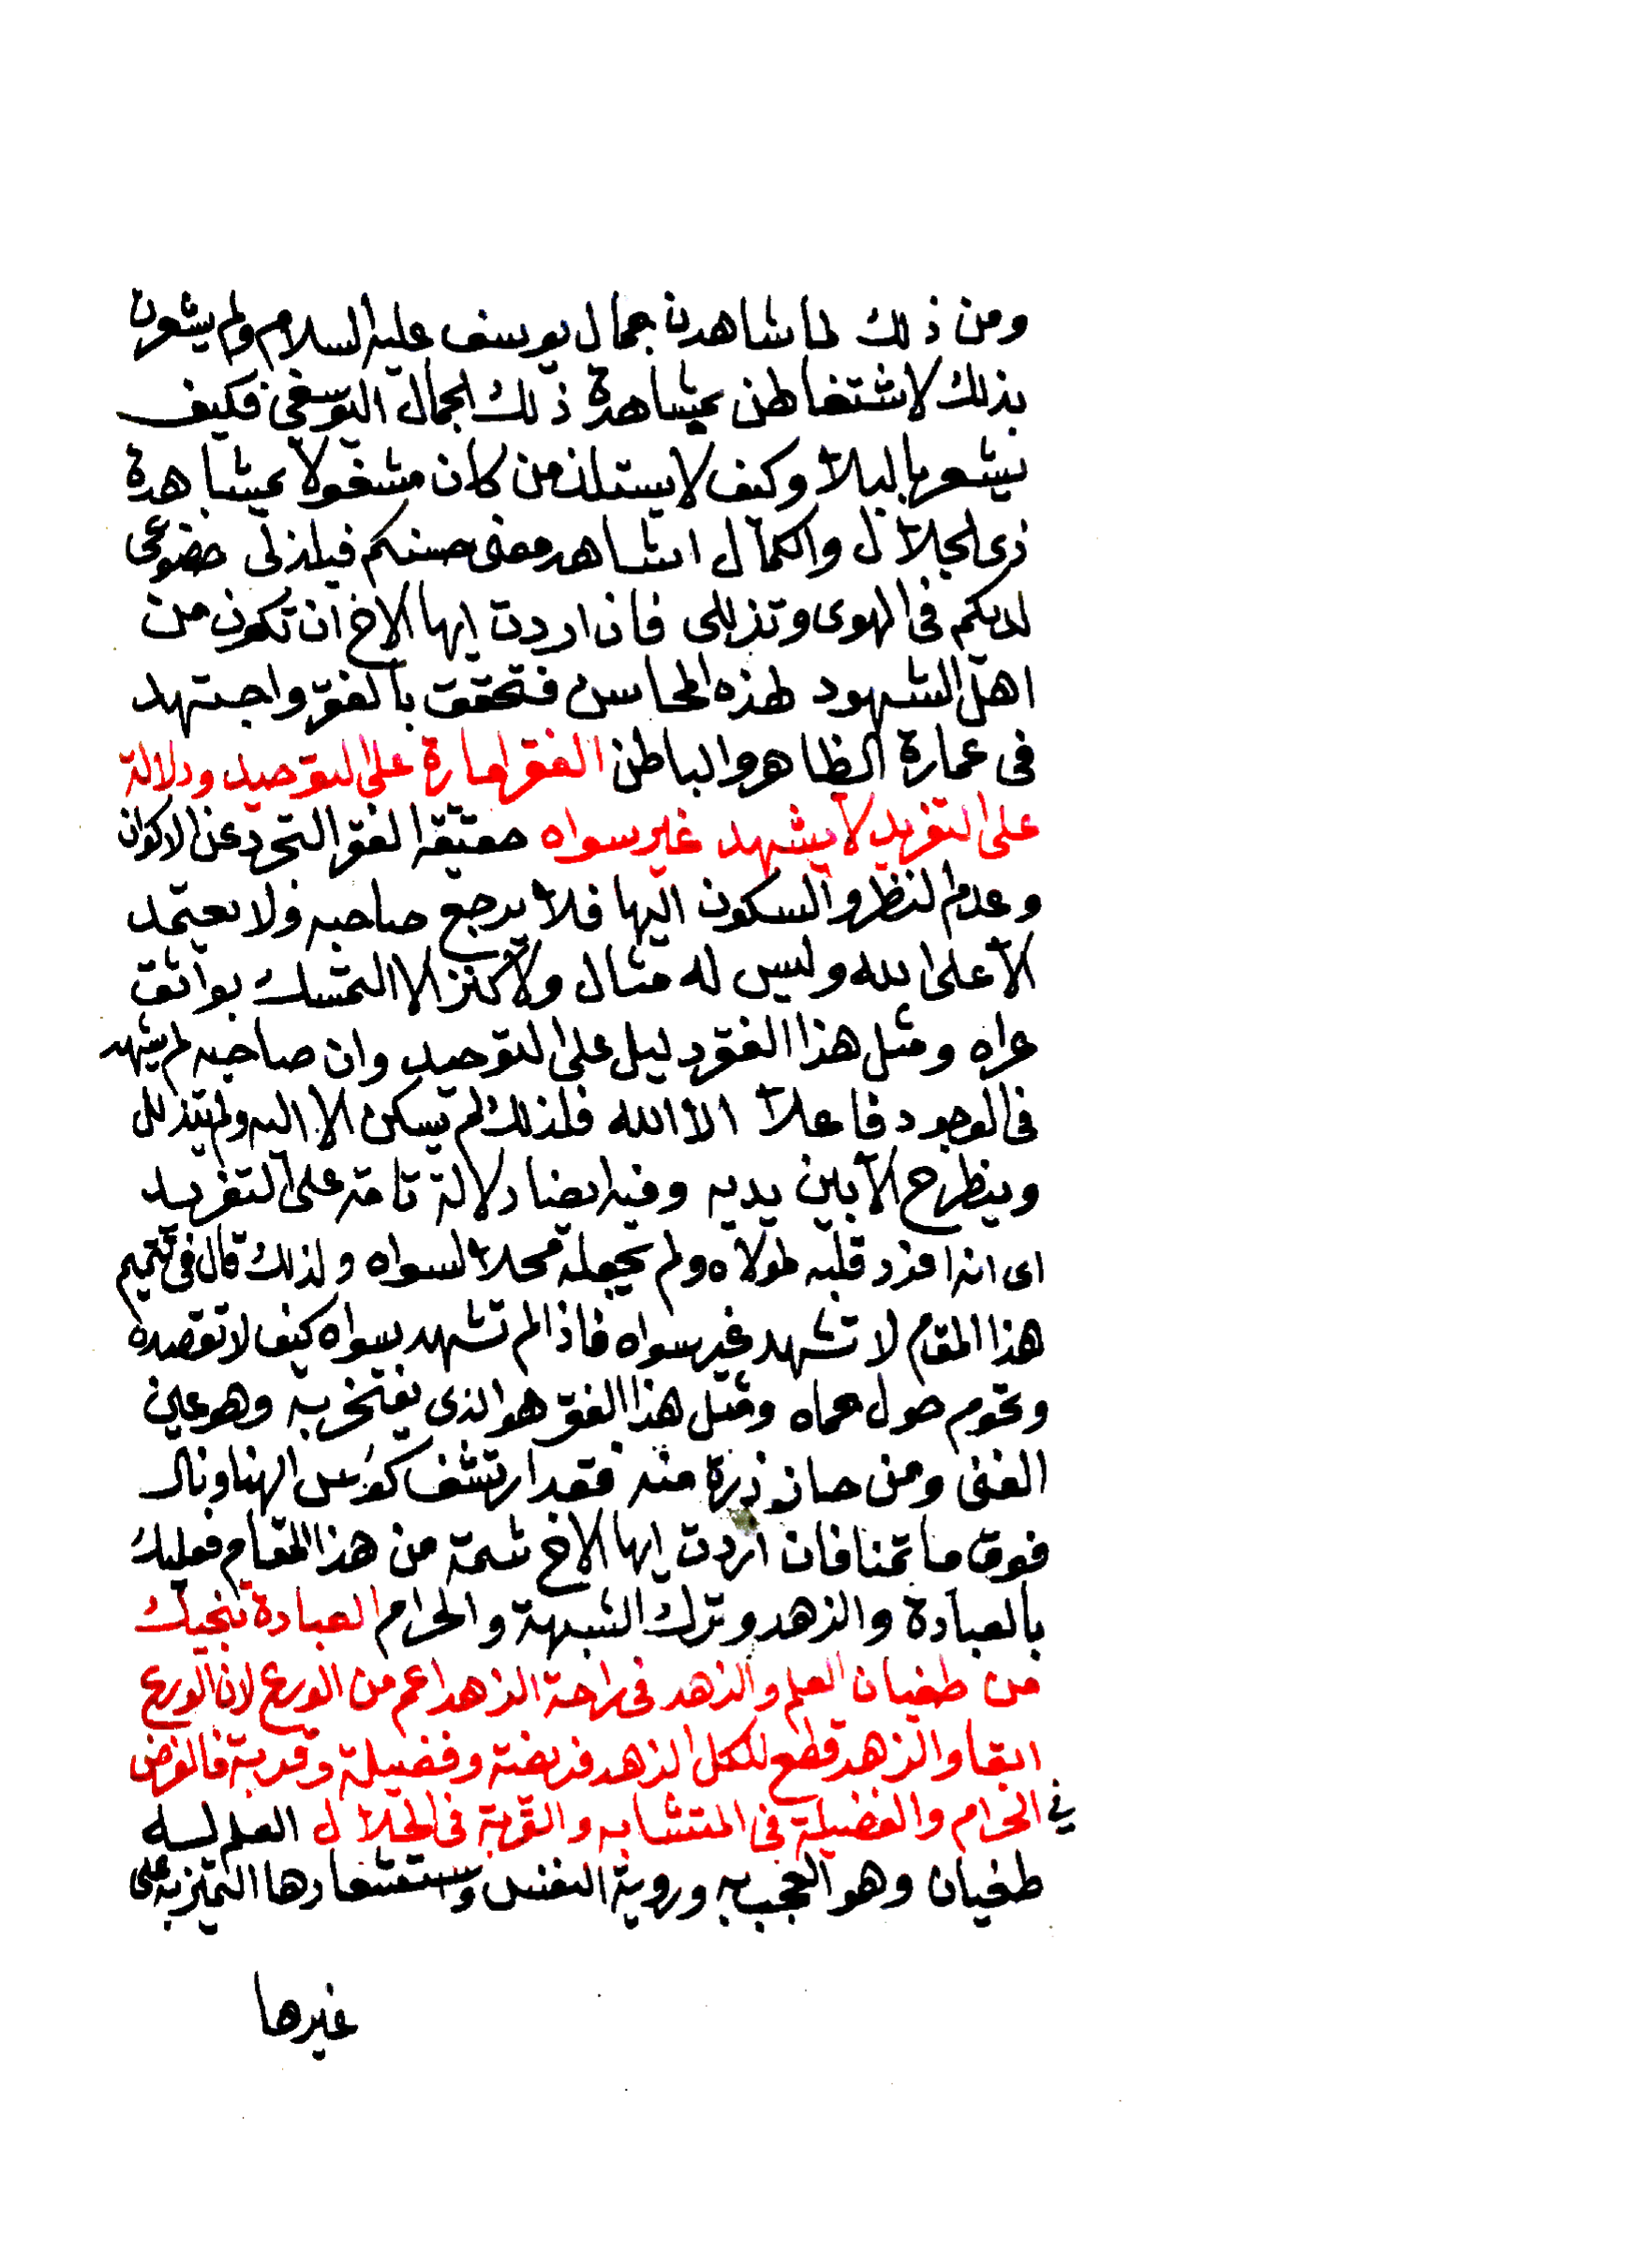 ومن ذلك لما شاهدن جمال يوسف عليه السلام ولم يشعرن
بذلك لاشتغالهن بمشاهدة ذلك الجمال اليوسفى فكيف
يشعر بالبلاء وكيف لا يستلذ من كان مشغولا بمشاهدة
ذى الجلال والكمال اشاهد معنى حسنكم فيلذ لى خضوعى
لديكم فى الهوى وتذللى فان اردت ايها الاخ ان تكون من
اهل الشهود لهذه المحاسن فتحقق بالفقر واجتهد
فى عمارة الظاهر والباطن الفقر امارة على التوحيد ودلالة
على التفريد لا يشهد غير سواه حقيقة الفقر التجرد عن الاكوان
وعدم النظر والسكون اليها فلا يرجع صاحبه ولا يعتمد
الا على الله وليس له مثال ولا كنز الا التمسك بواثق
عراه ومثل هذا الفقر دليل على التوحيد وان صاحبه لم يشهد
فى الوجود فاعلا الا الله فلذلك لم يسكن الا اليه ولم يتذلل
وينطرح الا بين يديه وفيه ايضا دلالة تامة على التفريد
اى انه افرد قلبه لمولاه ولم يجعله محلا لسواه ولذلك قال فى تتميم
هذا المقام لا تشهد غير سواه فاذا لم تشهد بسواه كيف لا تقصده
وتحوم حول حماه ومثل هذا الفقر هو الذى يفتخر به وهو عين
الغنى ومن حاز ذرة منه فقد ارتشف كؤس الهنا ونال
فوق ما تمنا فان اردت ايها الاخ شمة من هذا المقام فعليك
بالعبادة والزهد وترك الشبهة والحرام العبادة تنجيك
من طغيان العلم والزهد فى راحة الزهد اعم من الورع لان الورع
ابقا والزهد قطع للكل الزهد فريضة وفضيلة وقربة فالفرض
فى الحرام والفضيلة فى المتشابه والقربة فى الحلال العلم له
طغيان وهو العجب به وروية النفس واستشعارها التميز به على
غيرها